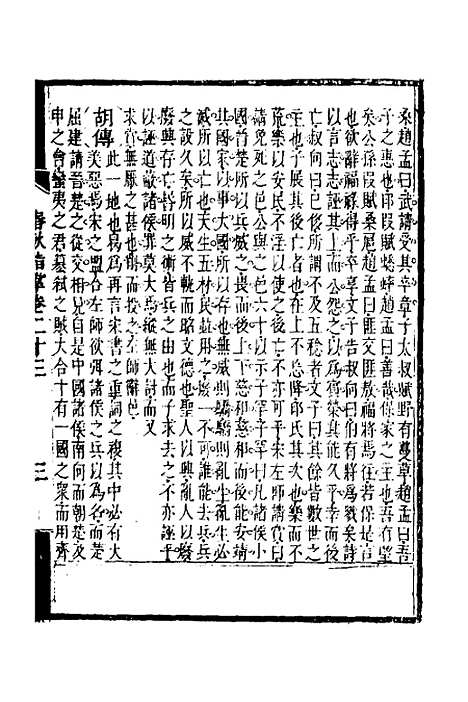 桑趙孟曰武請受其卒章子太叔賦野有蔓草趙孟曰吾
子之惠也印段賦蟋蟀趙孟曰善哉保家之主也吾有望
矣公孫段賦桑扈趙孟曰匪交匪敖福將焉往若保是言
也欲辭福祿得乎卒享文子告叔向曰伯有將為戮矣詩
以言志志誣其上而公怨之以為賓榮其能久乎幸而後
亡叔向曰然已侈所謂不及五稔者文子曰其餘皆數世之
主也子展其後亡者也在上不忘降印氏其次也樂而不
荒樂以安民不淫以使之後亡不亦可乎宋左師請賞曰
請免死之邑公與之邑六十以示子罕子罕曰凡諸侯小
國晉楚所以兵威之畏而後上下慈和慈和而後能安靖
其國家以事大國所以存也無威則驕驕則亂生亂生必
滅所以亡也天生五材民並用之廢一不可誰能去兵兵
之設久矣所以威不軌而昭文德也聖人以興亂人以廢
廢興存亡昏明之術皆兵之由也而子求去之不亦誣乎
以誣道蔽諸侯罪莫大焉縱無大討而又
求賞無厭之甚也削而投之左師辭邑
胡傳此一地也曷為再言宋書之重詞之複其中必有大
美惡焉宋之盟合左師欲弭諸侯之兵以為名而楚
屈建請晉楚之從交相見自是中國諸侯南向而朝楚及
申之會蠻夷之君篡弒之賊大合十有一國之衆而用齊
春秋 卷二十三
三